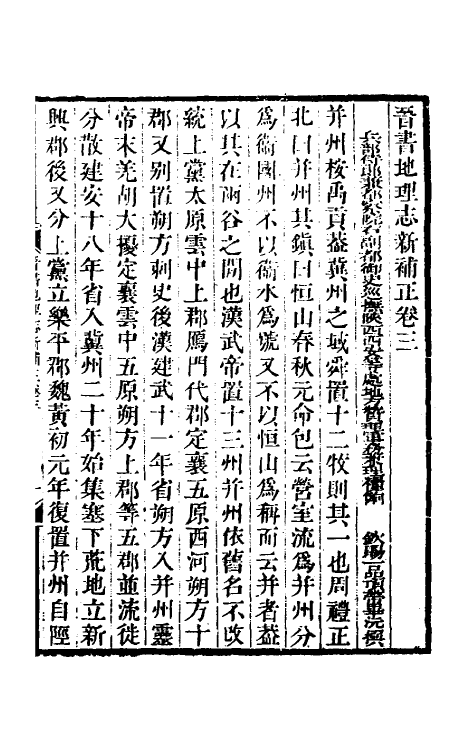 晋書地理志新補正卷三
兵部侍郎兼都察院右副都御史巡撫陝西西安等處地方贊理軍務兼理糧餉 欽賜一品頂帶畢沅撰
并州按禹貢葢冀州之域舜置十二牧則其一也周禮正
北曰并州其鎮曰恒山春秋元命包云營室流爲并州分
爲衞國州不以衞水爲號又不以恒山爲稱而云并者葢
以其在兩谷之間也漢武帝置十三州并州依舊名不改
統上黨太原雲中上郡鴈門代郡定襄五原西河朔方十
郡又别置朔方刺史後漢建武十一年省朔方入并州靈
帝末羌胡大擾定襄雲中五原朔方上郡等五郡並流徙
分散建安十八年省入冀州二十年始集塞下荒地立新
興郡後又分上黨立樂平郡魏黃初元年復置并州自陘